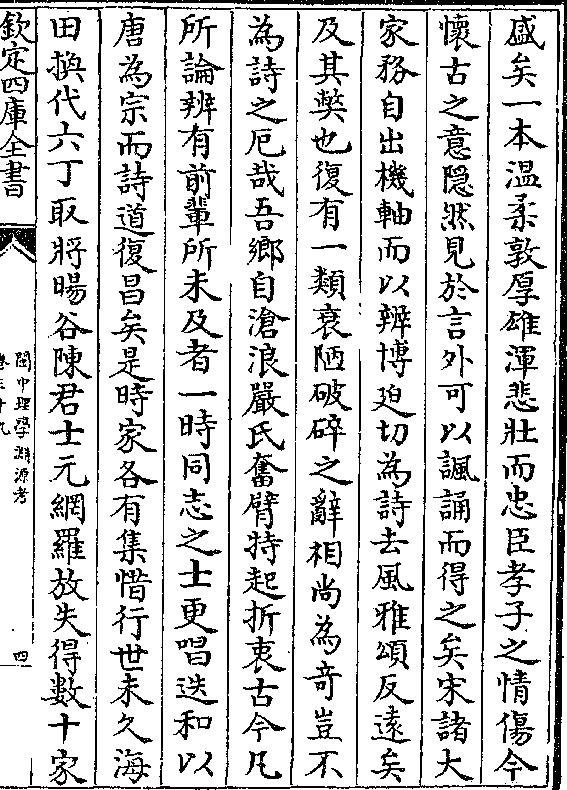 盛矣一本温柔敦厚雄渾悲壯而忠臣孝子之情傷今
懷古之意隠然見於言外可以諷誦而得之矣宋諸大
家務自出機軸而以辨博廹切為詩去風雅頌反遠矣
及其獘也復有一類衰陋破碎之辭相尚為竒豈不
為詩之厄哉吾鄉自滄浪嚴氏奮臂特起折衷古今凡
所論辨有前輩所未及者一時同志之士更唱迭和以
唐為宗而詩道復昌矣是時家各有集惜行世未久海
田換代六丁取將暘谷陳君士元網羅放失得數十家
欽定四庫全書
閩中理學淵源考
卷三十九
四